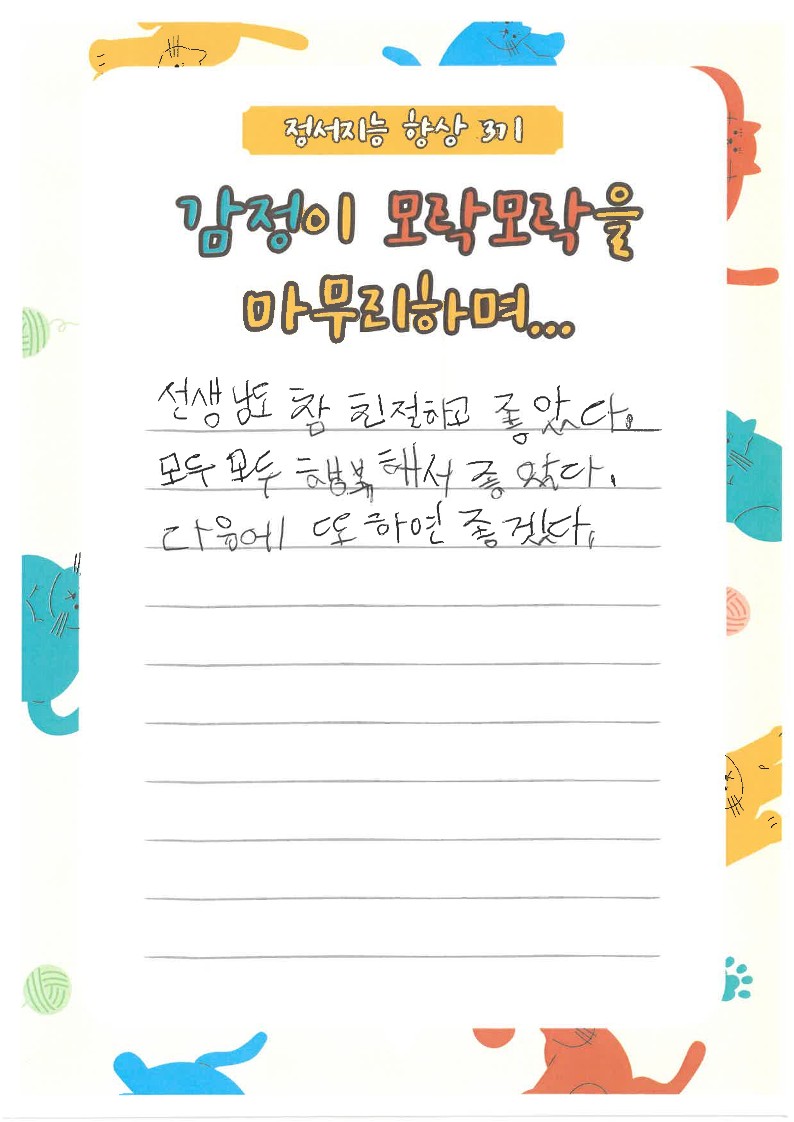 정서지능 향상 3기
감정이 모락모락을
마무리하며...
선생님도 참 친절하고 좋았다.
모두 모두 행복해서 좋았다.
다음에 또 하면 좋겠다.